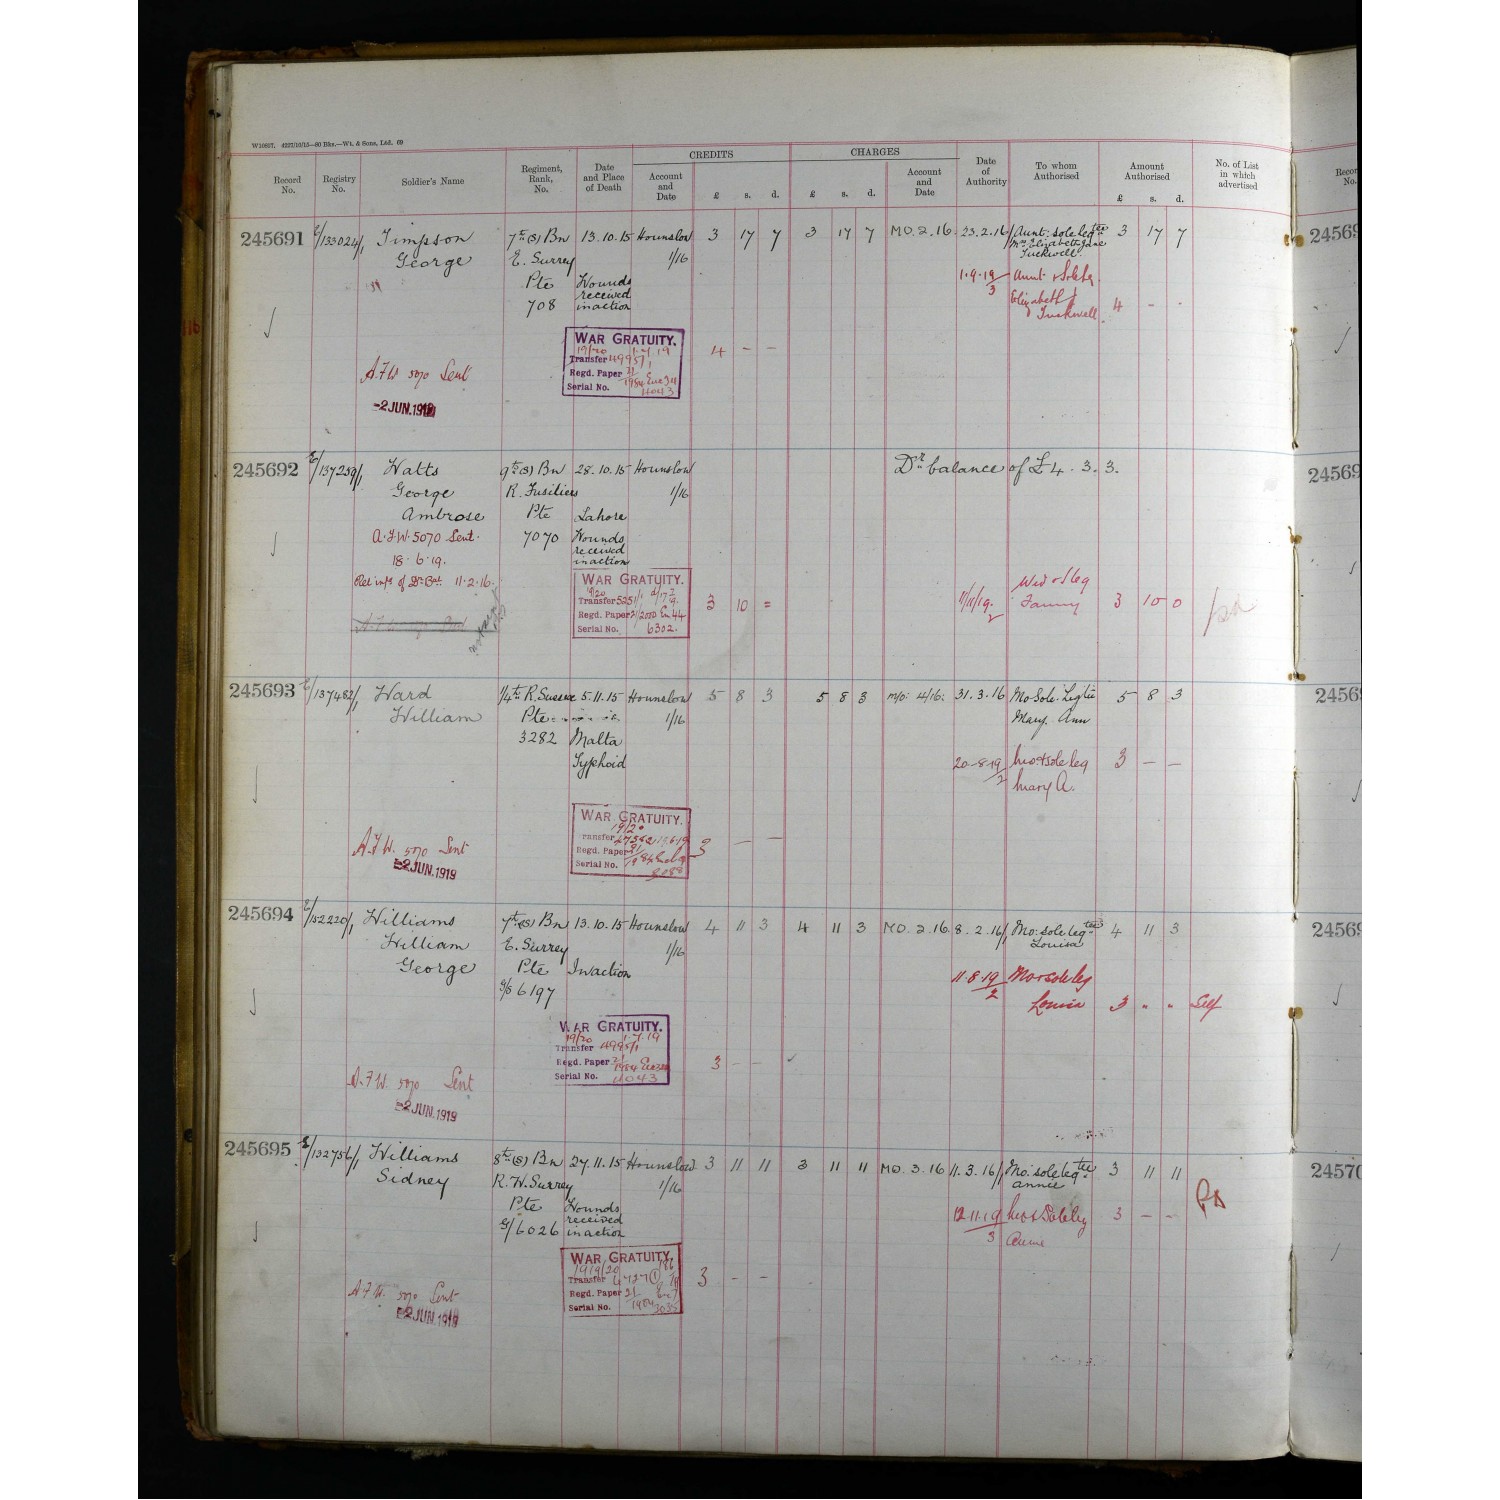 W10827. 4227/10/15—80 Bks.—Wt. & Sons, Ltd. 69
CREDITS CHARGES
Record No. Registry No. Soldier's Name Regiment, Rank, No. Date and Place of Death Account and Date £ s. d. £ s. d. Account and Date Date of Authority To whom Authorised Amount Authorised £ s. d. No. of List in which advertised
Record No.
245691 E/133024/1 Timpson 7th (S) Bn 13.10.15 Hounslow 3 17 7 3 17 7 MO.2.16 23.2.16/1 Aunt: sole legtee 3 17 7
George E. Surrey 1/16 Mrs Elizabeth Jane
Tuckwell.
Pte Wounds 1.9.19/3 Aunt & Sole Leg
708 received Elizabeth J 4 - -
in action Tuckwell
WAR GRATUITY.
19/20 1.7.19
Transfer 4995/1 4 - -
Regd. Paper 21/1984 Enc 34
Serial No. 4043
A.F.W. 5070 Sent
-2 JUN. 1919
245692 E/137259/1 Watts 9th (S) Bn 28.10.15 Hounslow Dr balance of £4.3.3.
George R. Fusiliers 1/16
Ambrose Pte Lahore
A.F.W. 5070 Sent. 7070 Wounds
18.6.19. received
in action
Rel infd of Dr Bal 11.2.16.
WAR GRATUITY.
19/20
Transfer 5251/1 Wid & leg
Regd. Paper 21/2000 En 44 3 10 = 11/11/19/2 Fanny 3 10 0
Serial No. 6302.
245693 E/137482/1 Ward 1/4th R. Sussex 5.11.15 Hounslow 5 8 3 5 8 3 m/o: 4/16: 31.3.16 Mo Sole. Legtee 5 8 3
William Pte 1/16 Mary Ann
3282 Malta
Typhoid 20-8-19/2 Mo & sole leg 3 - -
Mary A.
WAR GRATUITY.
19/20
Transfer
Regd. Paper 21 3 - -
Serial No.
A.F.W. 5070 Sent
-2 JUN. 1919
245694 E/152220/1 Williams 7th (S) Bn 13.10.15 Hounslow 4 11 3 4 11 3 MO.2.16. 8.2.16/1 Mo: sole legtee 4 11 3
William E. Surrey 1/16 Louisa
George Pte In action 11.8.19/2 Mo & sole leg
G/S 6197 Louisa 3 " " Self
WAR GRATUITY.
19/20 1.7.19
Transfer 4995/1
Regd. Paper 21/1984 Enc 34 3 - -
Serial No. 4043
A.F.W. 5070 Sent
-2 JUN. 1919
245695 E/132756/1 Williams 8th (S) Bn 27.11.15 Hounslow 3 11 11 3 11 11 MO.3.16 11.3.16/1 Mo: sole legtee 3 11 11
Sidney R. W. Surrey 1/16 Annie
Pte Wounds 12.11.19/3 Mo & Sole leg 3 - -
G/6026 received Annie
in action
WAR GRATUITY.
1919/20
Transfer 3 - -
Regd. Paper 21/1984
Serial No. 3035
A.F.W. 5070 Sent
-2 JUN. 1919